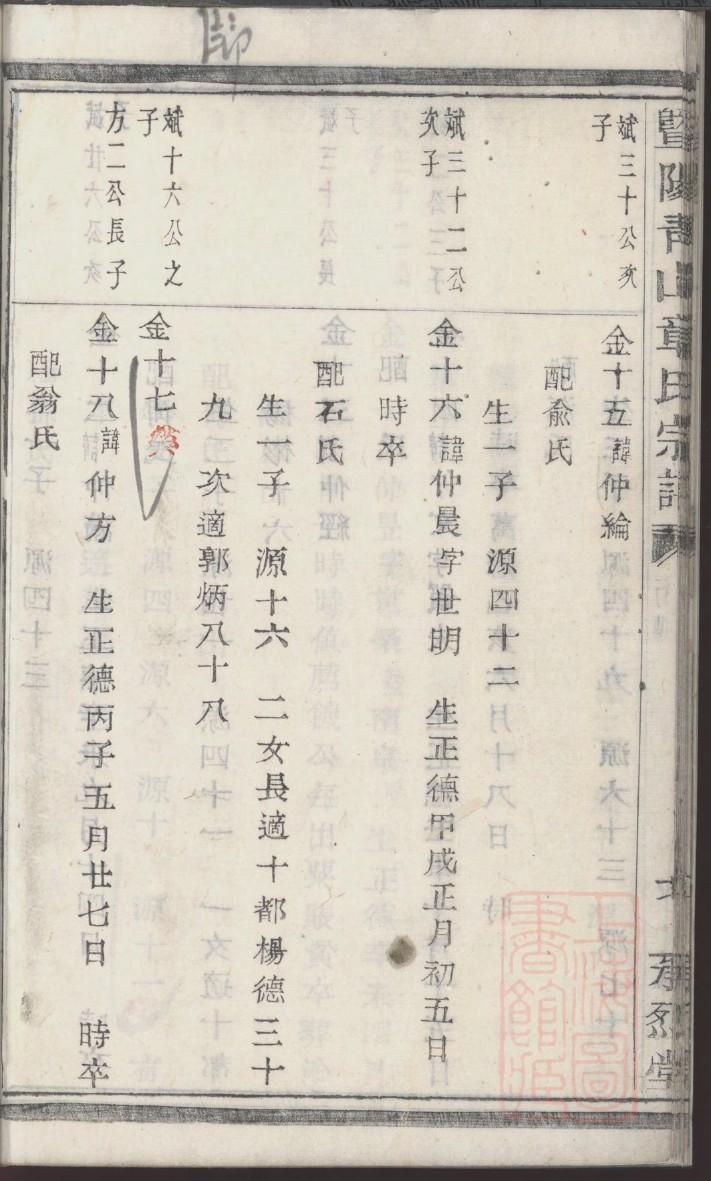 節
暨陽青山章氏宗譜
承烈堂
斌三十公次
子
金十五諱仲綸
配俞氏
生一子 源四十二
斌三十二公
次子
金十六諱仲晨字世明 生正德甲戌正月初五日
時卒
配石氏
生一子 源十六 二女長適十都楊德三十
九 次適郭炳八十八
斌十六公之
子
金十七
方二公長子
金十八諱仲方 生正德丙子五月廿七日 時卒
配翁氏